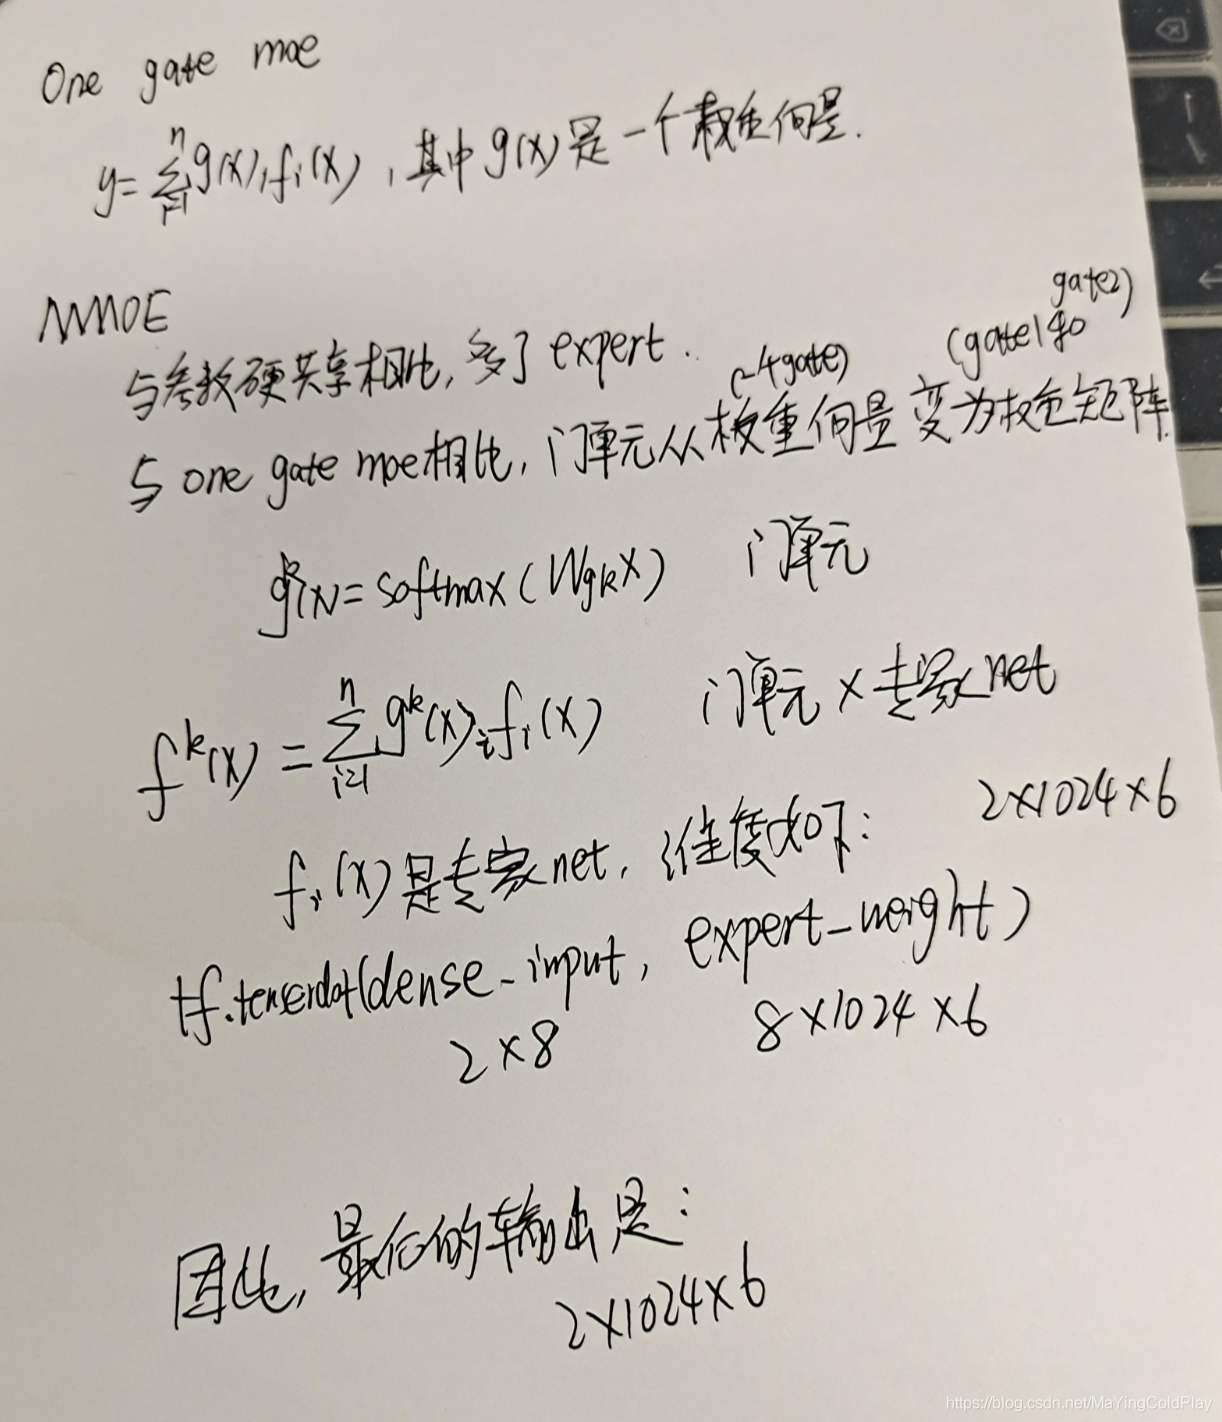 One gate moe
y=∑ⁿᵢ₌₁g(x)ᵢfᵢ(x),其中g(x)是一个权重向量.
MMOE
与参数硬共享相比,多了expert.
(一个gate) (gate1和gate2)
与one gate moe相比,门单元从权重向量变为权重矩阵.
gᵏ(x)=softmax(Wgkx) 门单元
fᵏ(x)=∑ⁿᵢ₌₁gᵏ(x)ᵢfᵢ(x) 门单元×专家net
fᵢ(x)是专家net,维度如下: 2×1024×6
tf.tensordot(dense_input, expert_weight)
2×8 8×1024×6
因此,最后的输出是:
2×1024×6
https://blog.csdn.net/MaYingColdPlay